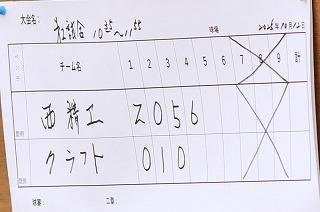 大会名: 社試合 10:35～11:55 球場 2025年10月12日
ベンチ チーム名 1 2 3 4 5 6 7 8 9 計
西精工 2 0 5 6
クラフト 0 1 0
球審: 二塁: